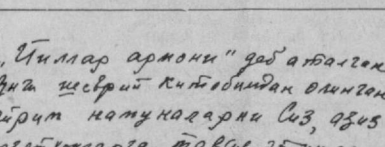 „Йиллар армони" деб аталган
янги насрий китобимдан олинган
айрим намуналарни Сиз, азиз